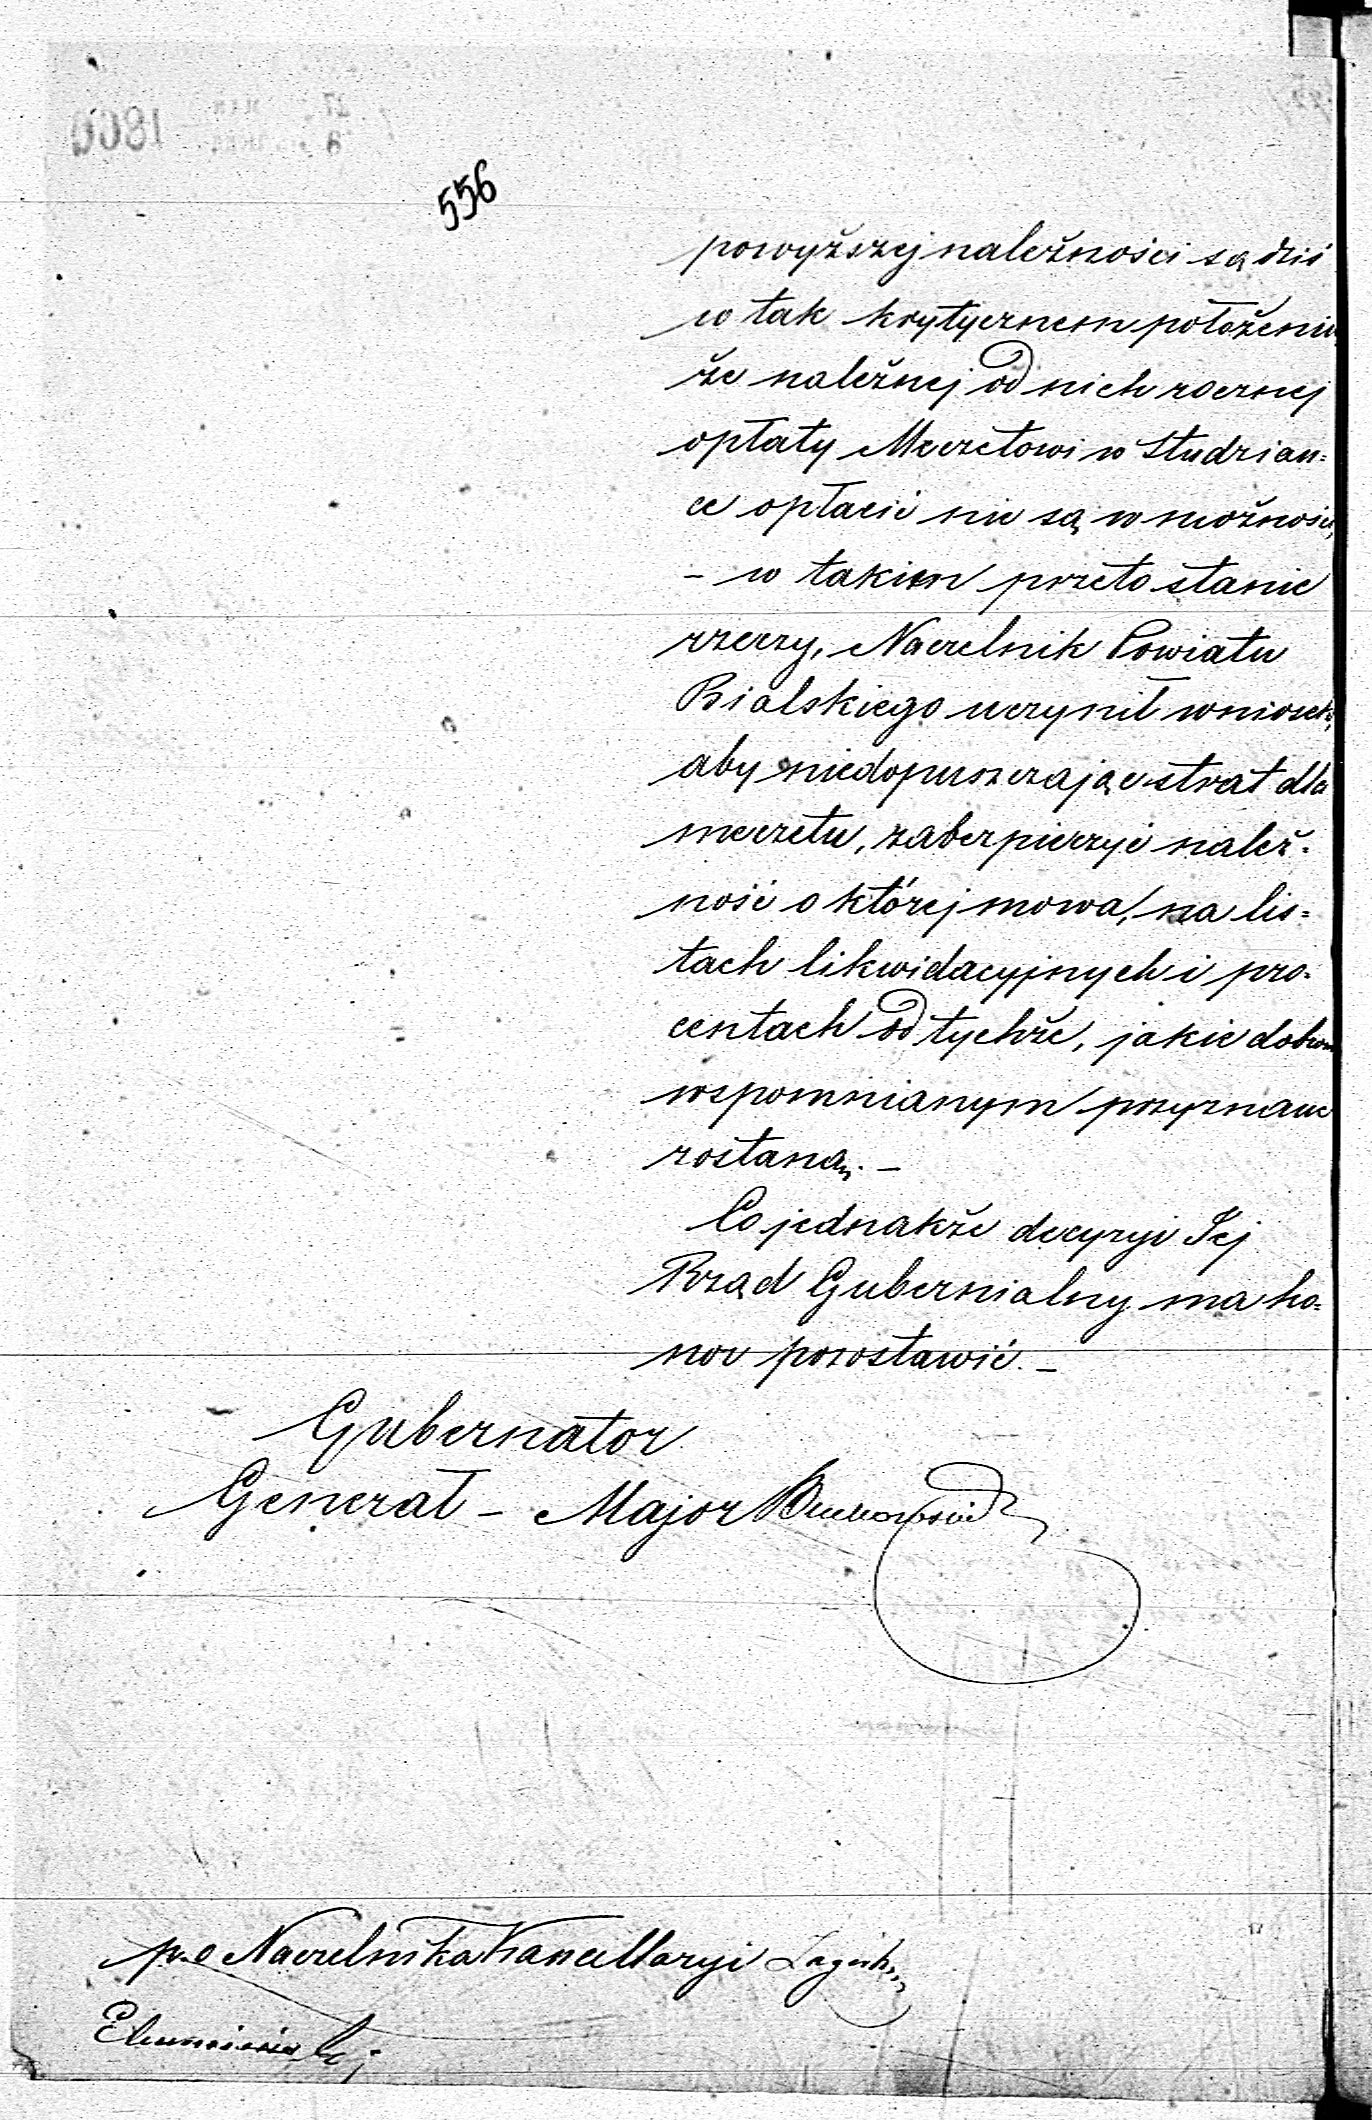 1866
556
powyższej należności są dziś
w tak krytycznem położeniu
że należnej od nich rocznej
opłaty Meczetowi w Studzian=
ce opłacić nie są w możności,
– w takim przeto stanie
rzeczy, Naczelnik Powiatu
Bialskiego uczynił wniosek,
aby niedopuszczając strat dla
meczetu, zabezpieczyć należ=
ność o której mowa, na lis=
tach likwidacyjnych i pro=
centach od tychże, jakie dobrom
wspomnianym przyznane
zostaną. –
Co jednakże decyzyi Jej
Rząd Gubernialny ma ho=
nor pozostawić. –
Gubernator
Generał – Major
p.o Naczelnika Kancellaryi